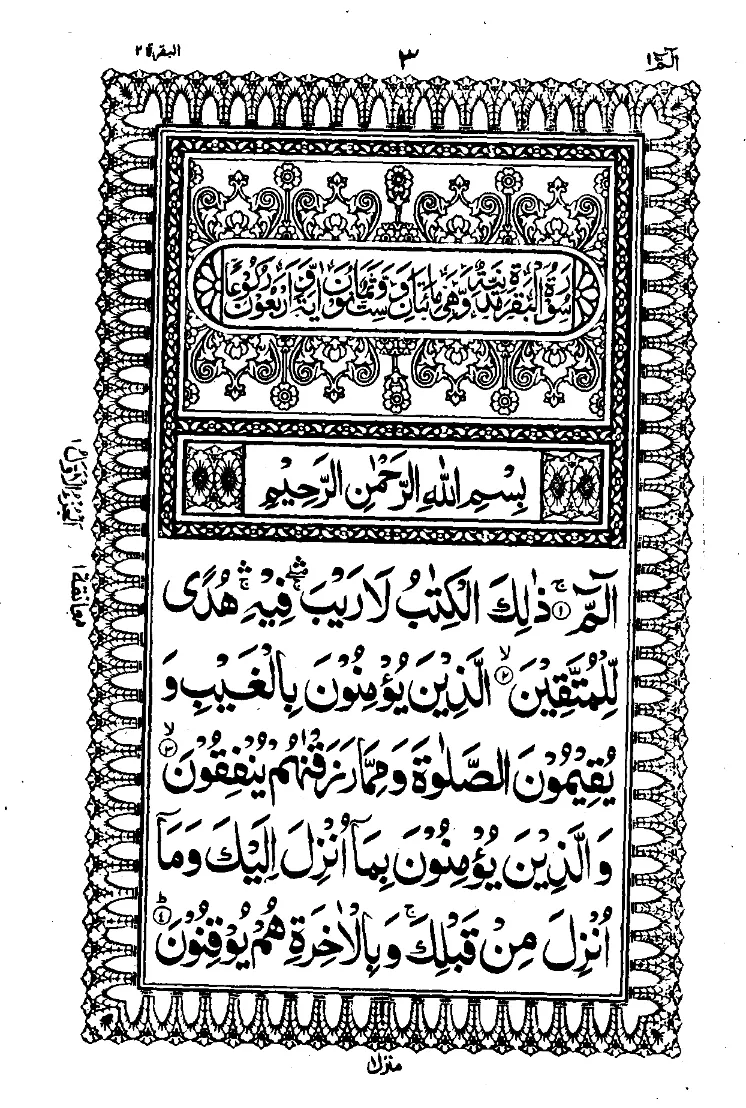 الٓمّٓ ١
٣
البقرة ٢
سُوْرَةُ الْبَقَرَةِ مَدَنِيَّةٌ وَّهِيَ مِائَتَانِ وَسِتٌّ وَّثَمَانُوْنَ اٰيَةً وَّاَرْبَعُوْنَ رُكُوْعًا
بِسْمِ اللّٰهِ الرَّحْمٰنِ الرَّحِيْمِ
الٓمّٓ ۚ ﴿١﴾ ذٰلِكَ الْكِتٰبُ لَا رَيْبَ ۛۖ فِيْهِ ۛۚ هُدًى
لِّلْمُتَّقِيْنَ ۙ ﴿٢﴾ الَّذِيْنَ يُؤْمِنُوْنَ بِالْغَيْبِ وَ
يُقِيْمُوْنَ الصَّلٰوةَ وَمِمَّا رَزَقْنٰهُمْ يُنْفِقُوْنَ ۙ ﴿٣﴾
وَالَّذِيْنَ يُؤْمِنُوْنَ بِمَآ اُنْزِلَ اِلَيْكَ وَمَآ
اُنْزِلَ مِنْ قَبْلِكَ ۚ وَبِالْاٰخِرَةِ هُمْ يُوْقِنُوْنَ ؕ ﴿٤﴾
الجزء الاول ١
معانقة ١
منزل ١